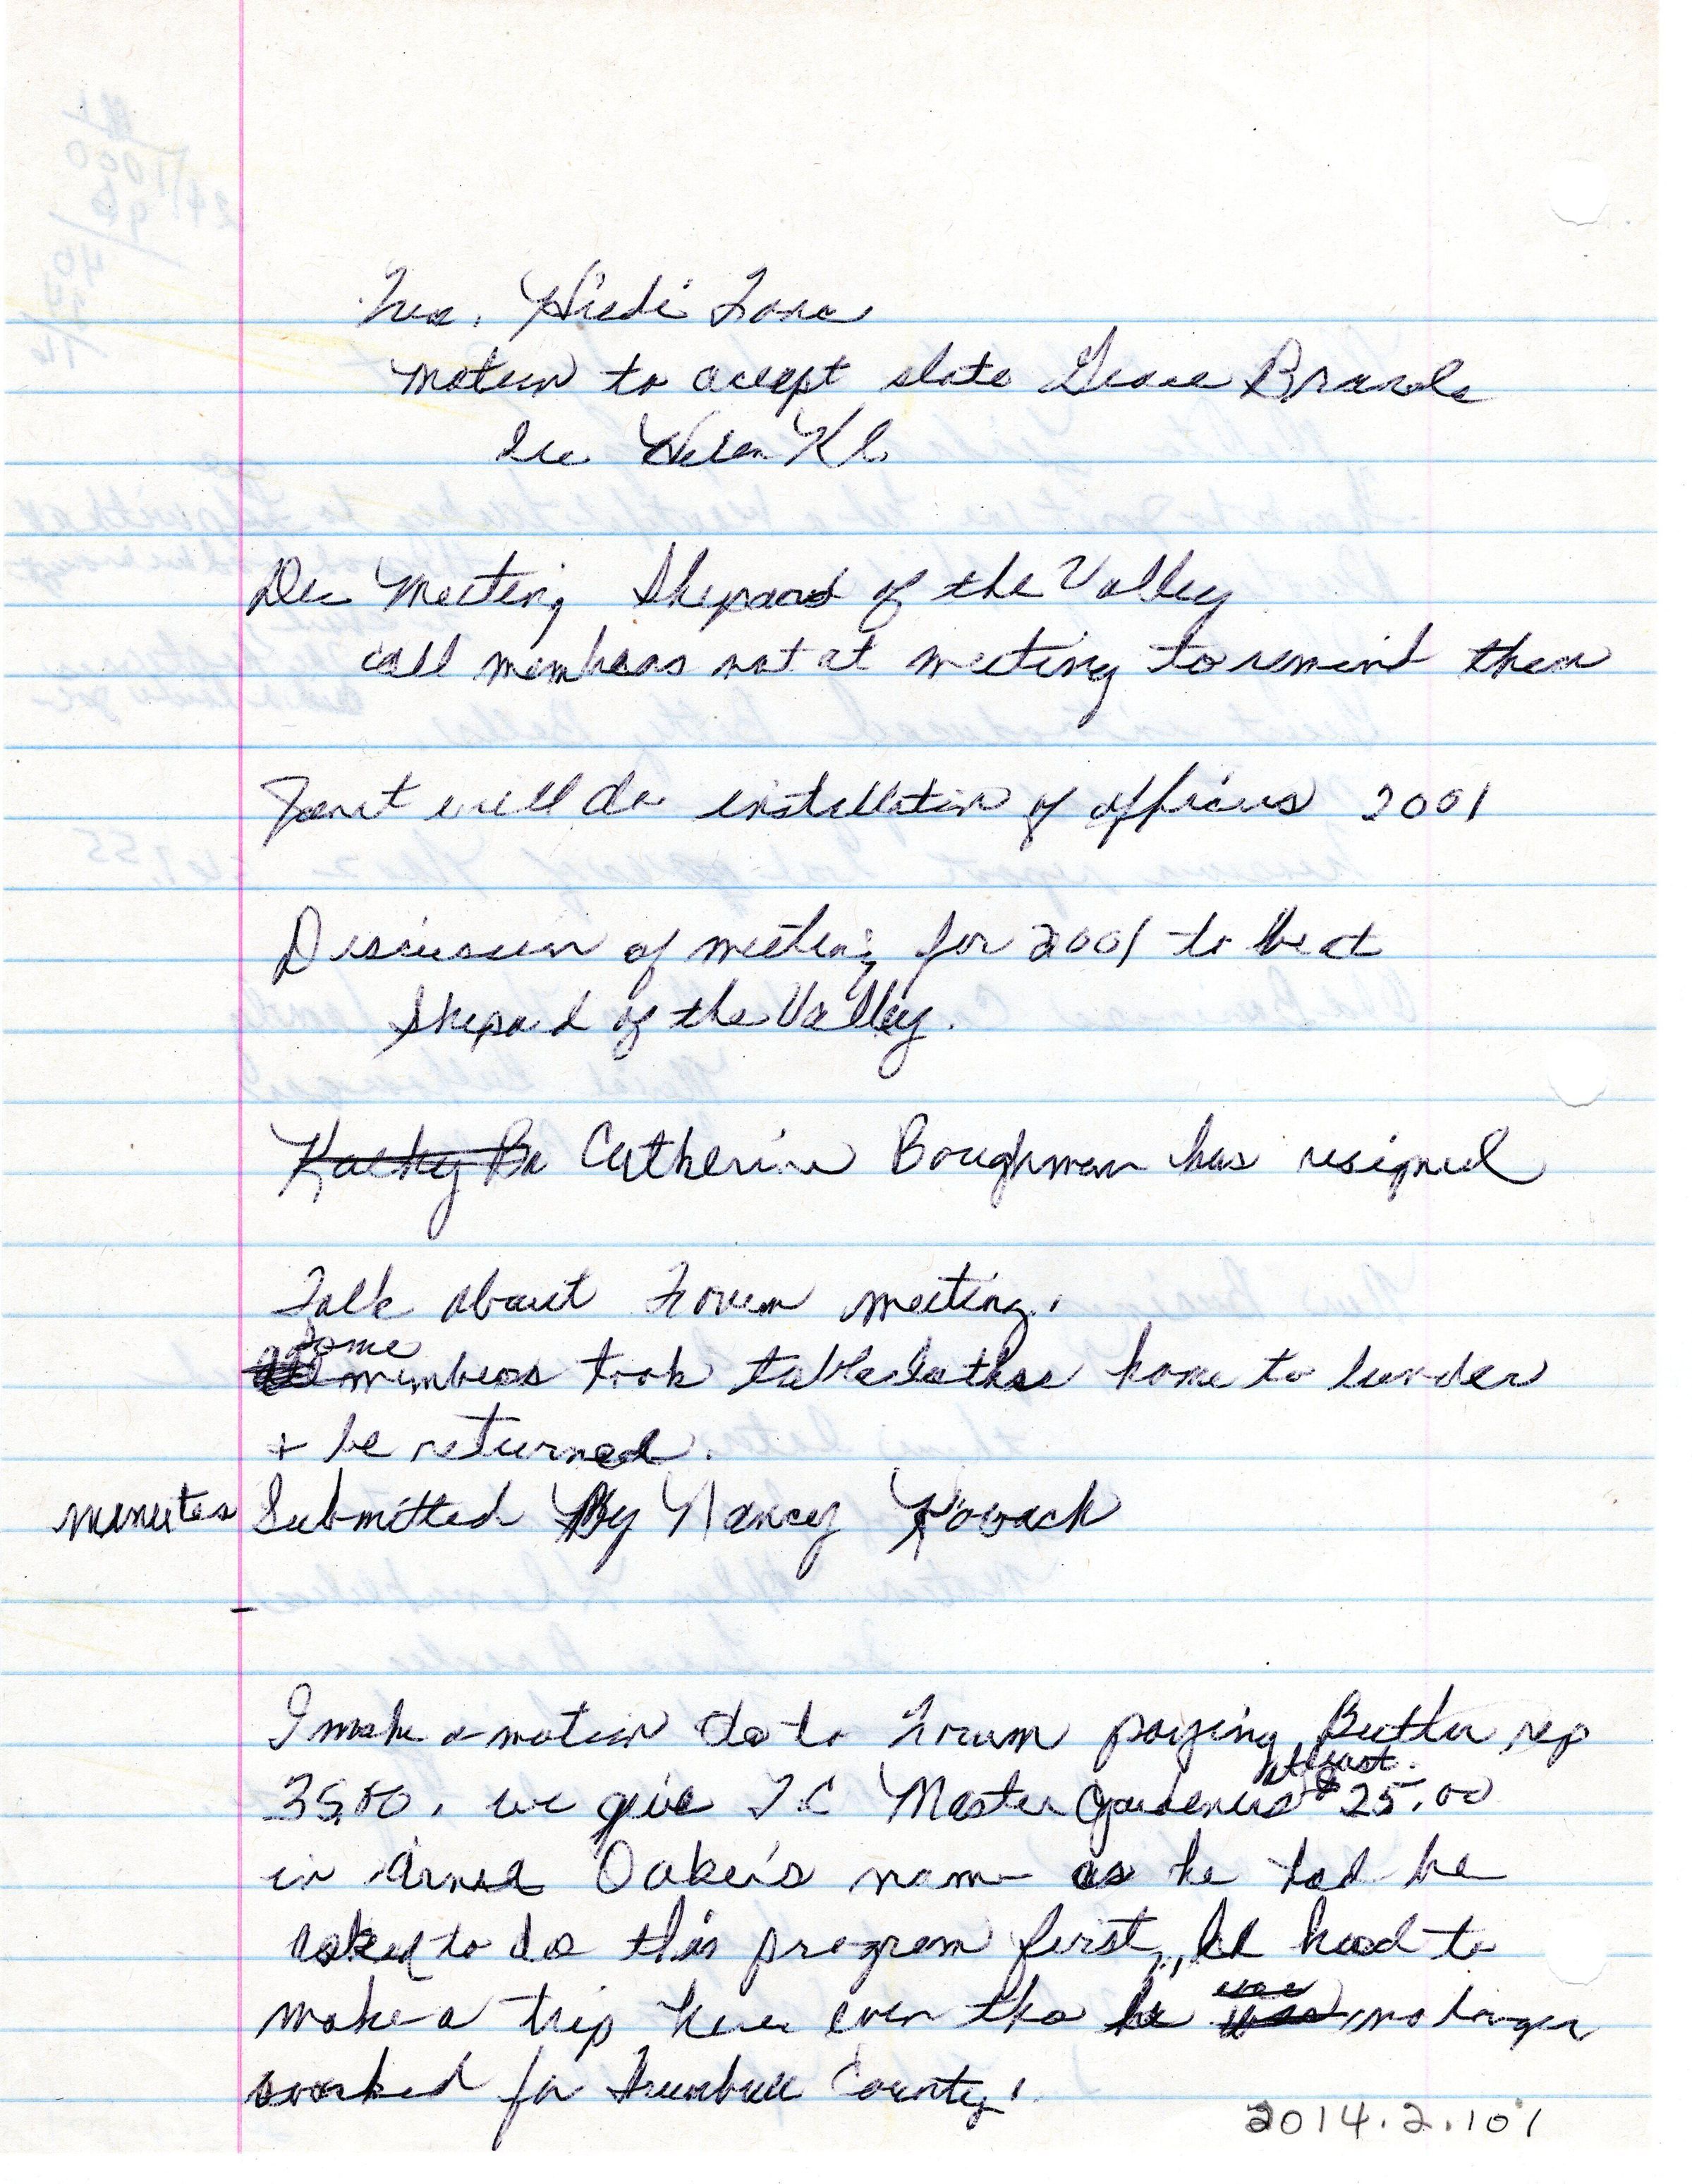 Tres. Heidi
Motion to accept slate Grace
Sec Helen Kl.
Dec Meeting Shepard of the Valley
call members not at meeting to remind them
Janet will do installation of officers 2001
Discussion of meeting for 2001 to be at
Shepard of the Valley.
Kathy Ba Catherine Boughman has resigned
Talk about Forum meeting.
some
members took tableclothes home to launder
+ be returned.
minutes Submitted By Nancy Kovach
I make a motion to Forum paying Butler rep
atleast
35.00. we give T.C Master Gardeners $25.00
in name as he had be
asked to do this program first, had to
make a trip here even tho he no longer
worked for Trumbull County.
2014.2.101